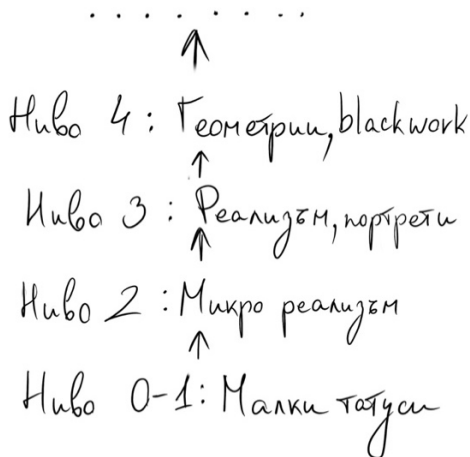 . . . . . . . .
Ниво 4: Геометрии, blackwork
Ниво 3: Реализъм, портрети
Ниво 2: Микро реализъм
Ниво 0-1: Малки татуси